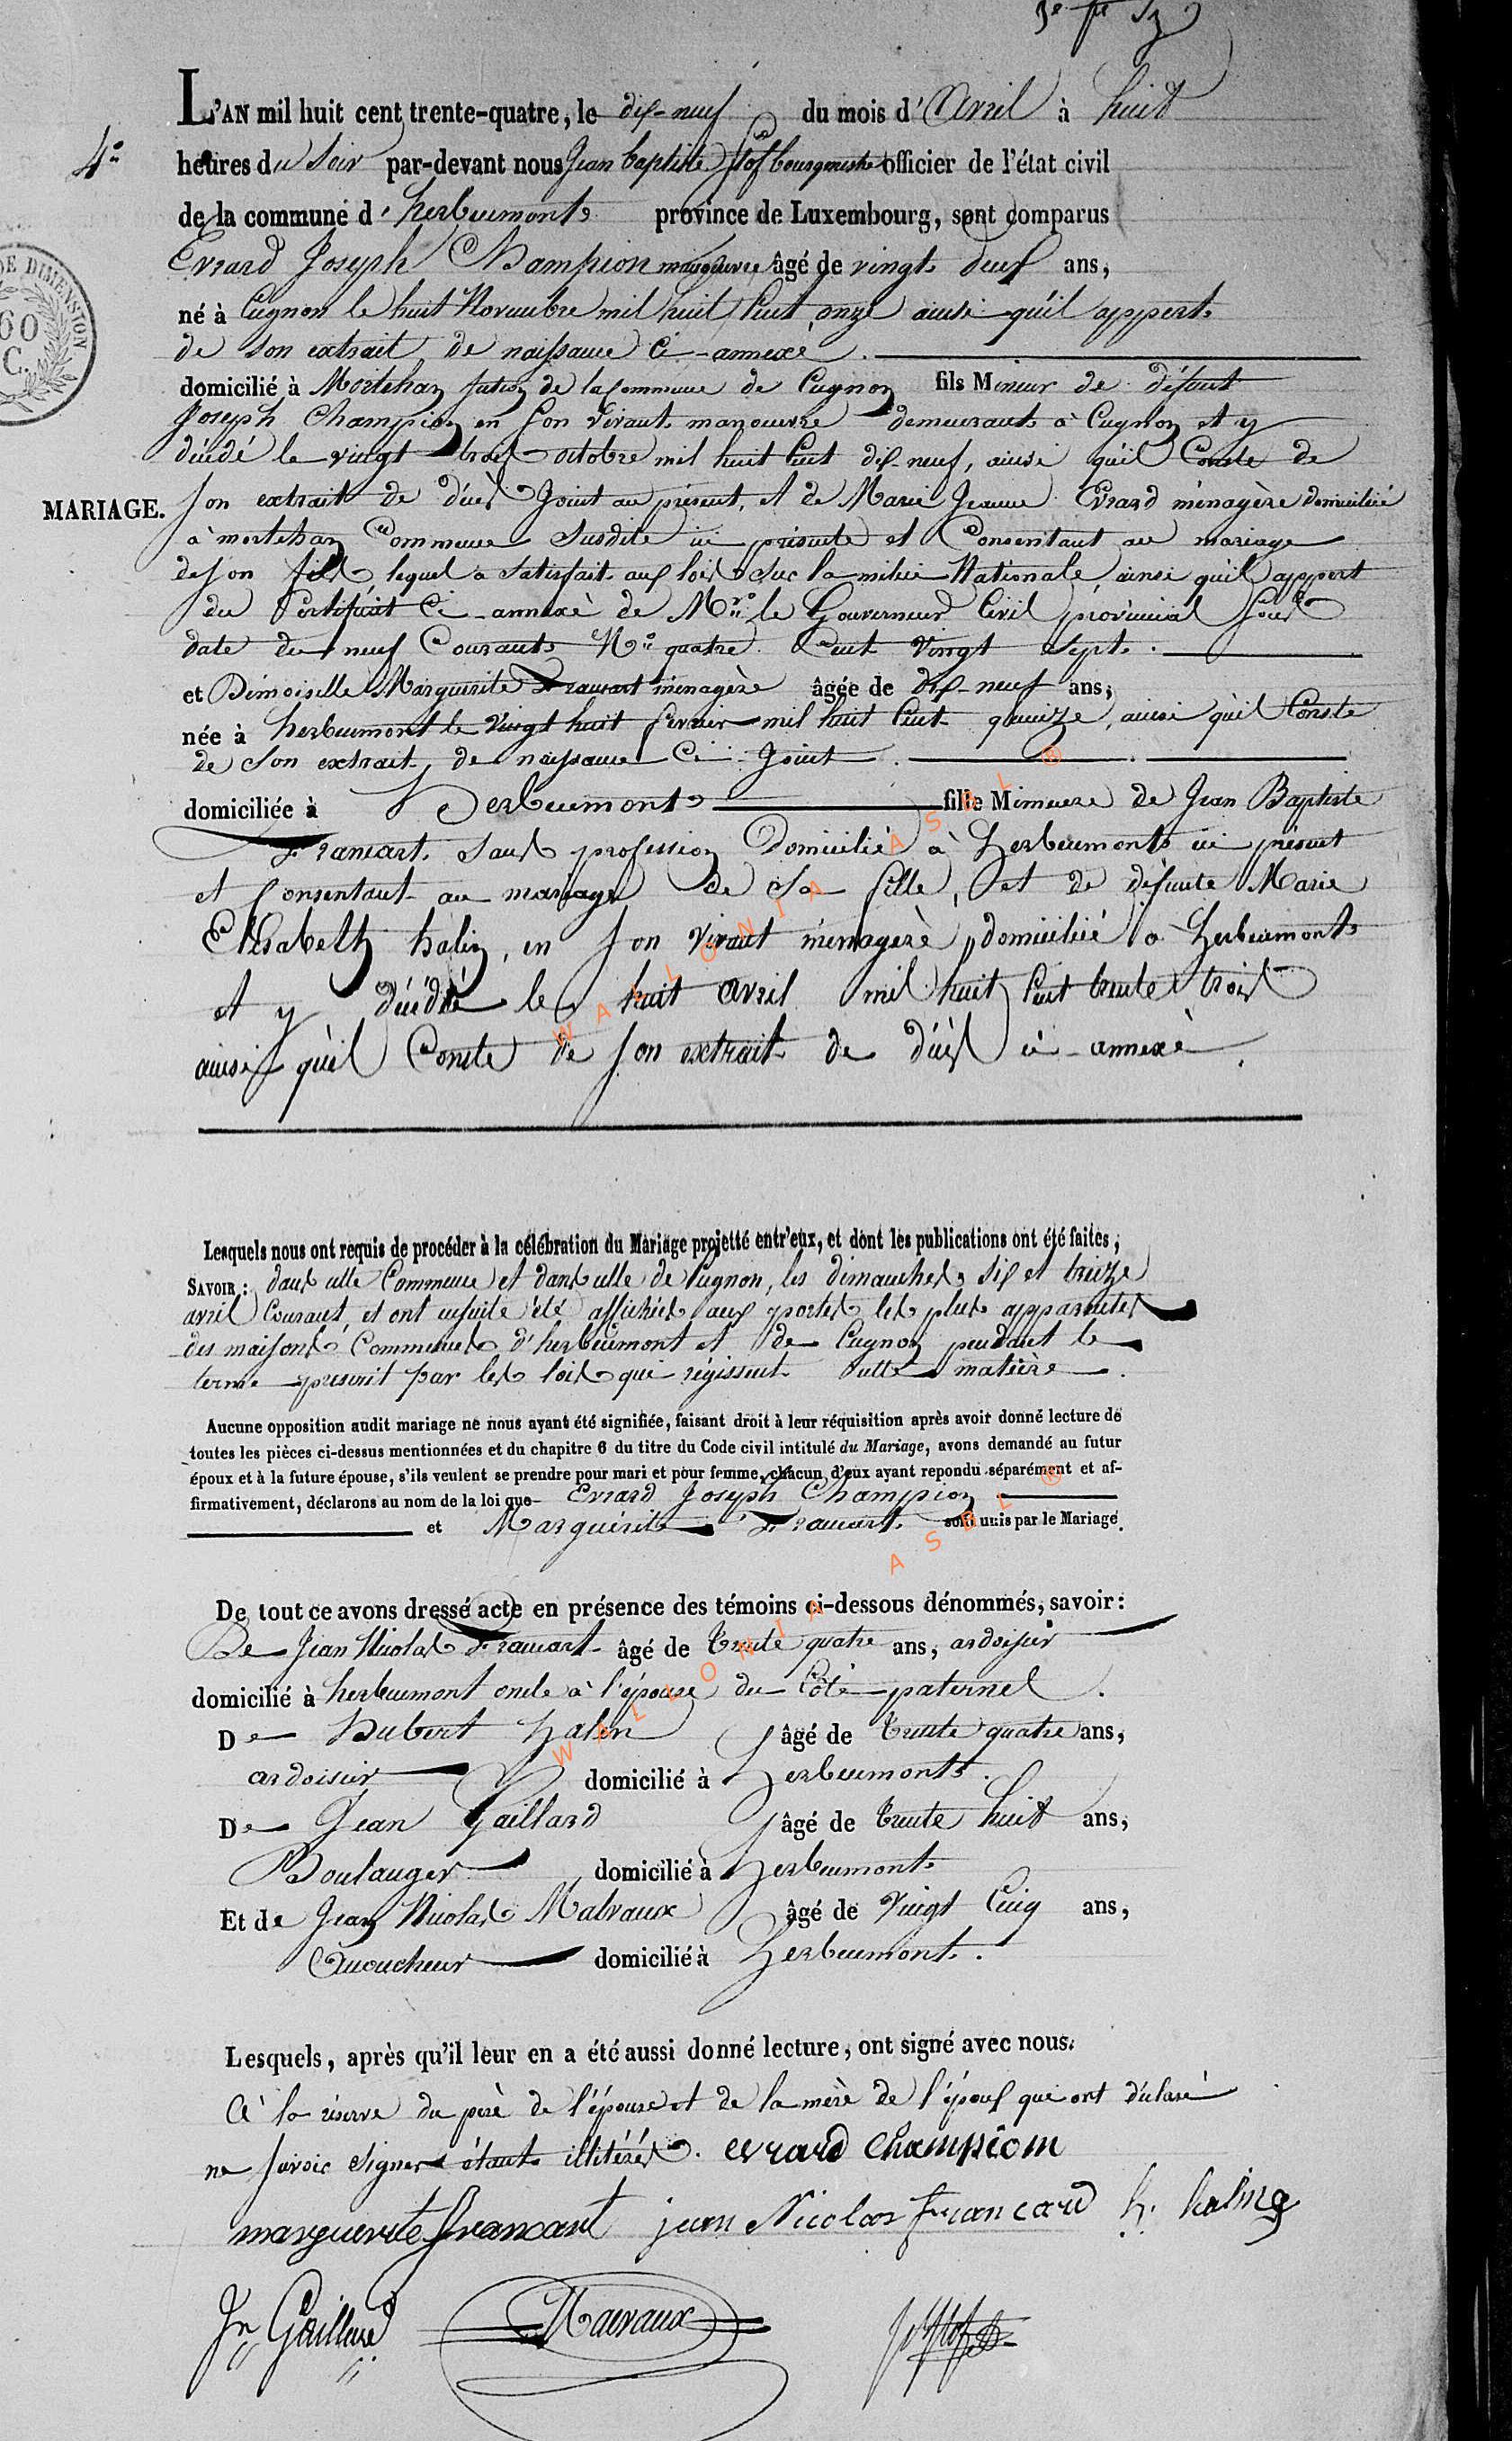 L'AN mil huit cent trente-quatre, le dix-neuf du mois d'Avril à huit
4e heures du Soir par-devant nous Jean Baptiste bourgmestre officier de l'état civil
de la commune d'herbeumont province de Luxembourg, sont comparus
Evrard Joseph Champion manoeuvre âgé de vingt deux ans,
né à Cugnon le huit Novembre mil huit Cent onze ainsi qu'il appert
de son extrait de naissance ci-annexé.
domicilié à Mortehan section de la Commune de Cugnon fils Mineur de défunt
Joseph Champion en son vivant manouvre demeurant à Cugnon et y
décédé le vingt trois octobre mil huit Cent dix-neuf, ainsi qu'il Conste de
MARIAGE. son extrait de décès Joint au présent, et de Marie Jeanne Evrard ménagère domiciliée
à mortehan Commune Susdite ici présente et Consentant au mariage
de son fils lequel a satisfait aux lois sur la milice Nationale ainsi qu'il appert
du Certificat Ci-annexé de Mr. le Gouverneur Civil provincial sous
date du neuf Courant No quatre Cent vingt Sept.
et Demoiselle Marguerite Francart ménagère âgée de dix-neuf ans,
née à herbeumont le vingt huit fevrier mil huit Cent quinze, ainsi qu'il Conste
de Son extrait de naissance Ci-Joint.
domiciliée à Herbeumont fille Mineure de Jean Baptiste
Francart Sans profession Domicilié à herbeumont ici présent
et Consentant au mariage de Sa fille, et de défunte Marie
Elisabeth halin, en son vivant ménagère, domiciliée à herbeumont
et y décédée le huit avril mil huit Cent trente trois
ainsi qu'il Conste de son extrait de décès ci-annexé.
Lesquels nous ont requis de procéder à la célébration du Mariage projetté entr'eux, et dont les publications ont été faites;
SAVOIR: dans cette Commune et dans celle de Cugnon, les dimanches six et treize
avril Courant, et ont ensuite été affichées aux portes les plus apparentes
des maisons Communes d'herbeumont et de Cugnon pendant le
terme prescrit par les lois qui régissent cette matière.
Aucune opposition audit mariage ne nous ayant été signifiée, faisant droit à leur réquisition après avoir donné lecture de
toutes les pièces ci-dessus mentionnées et du chapitre 6 du titre du Code civil intitulé du Mariage, avons demandé au futur
époux et à la future épouse, s'ils veulent se prendre pour mari et pour femme, chacun d'eux ayant repondu séparément et af-
firmativement, déclarons au nom de la loi que Evrard Joseph Champion
et Marguérite Francart sont unis par le Mariage.
De tout ce avons dressé acte en présence des témoins ci-dessous dénommés, savoir:
De Jean Nicolas Francart âgé de trente quatre ans, ardoisier
domicilié à herbeumont oncle à l'épouse du Côté paternel.
De Hubert halin âgé de trente quatre ans,
ardoisier domicilié à herbeumont.
De Jean Gaillard âgé de trente huit ans,
Boulanger domicilié à herbeumont
Et de Jean Nicolas Malvaux âgé de vingt Cinq ans,
Accoucheur domicilié à herbeumont.
Lesquels, après qu'il leur en a été aussi donné lecture, ont signé avec nous.
A la réserve du père de l'épouse et de la mère de l'époux qui ont déclaré
ne savoir Signer étant illitérés. evrard champiom
marguerite francart jean Nicolas francard h. haling
Jn Gaillard Malvaux
DE DIMENSION
60
C.
WALLONIA ASBL ®
WALLONIA ASBL ®